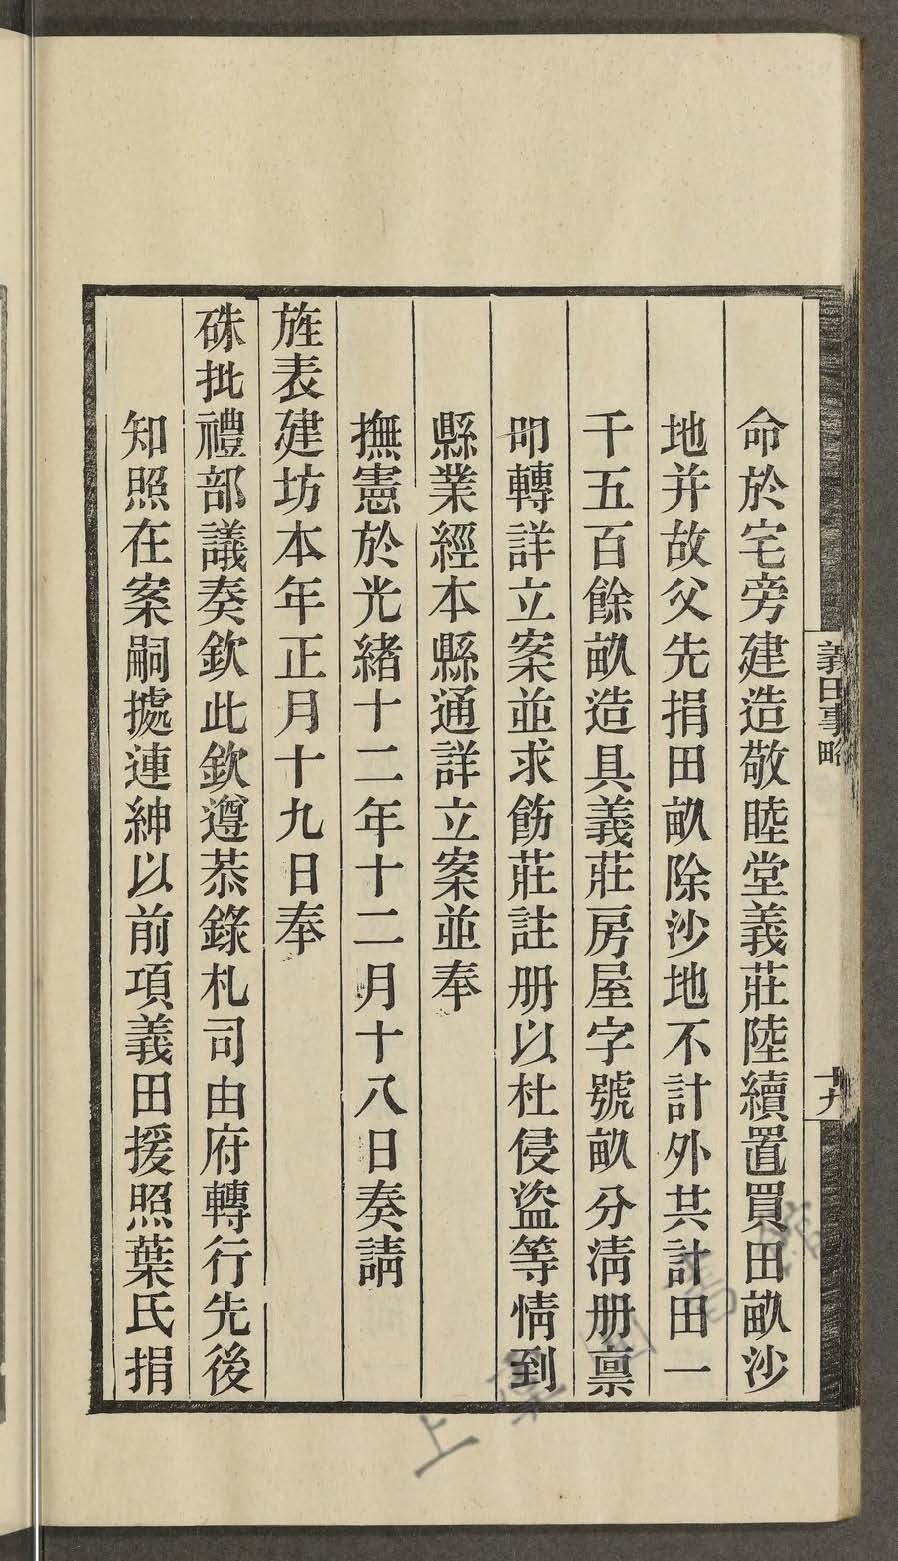 命於宅旁建造敬睦堂義莊陸續置買田畝沙
地并故父先捐田畝除沙地不計外共計田一
千五百餘畝造具義莊房屋字號畝分清册禀
叩轉詳立案並求飭莊註册以杜侵盜等情到
縣業經本縣通詳立案並奉
撫憲於光緒十二年十二月十八日奏請
旌表建坊本年正月十九日奉
硃批禮部議奏欽此欽遵恭錄札司由府轉行先後
知照在案嗣據連紳以前項義田援照葉氏捐
義田事略
十九
上 圖 書